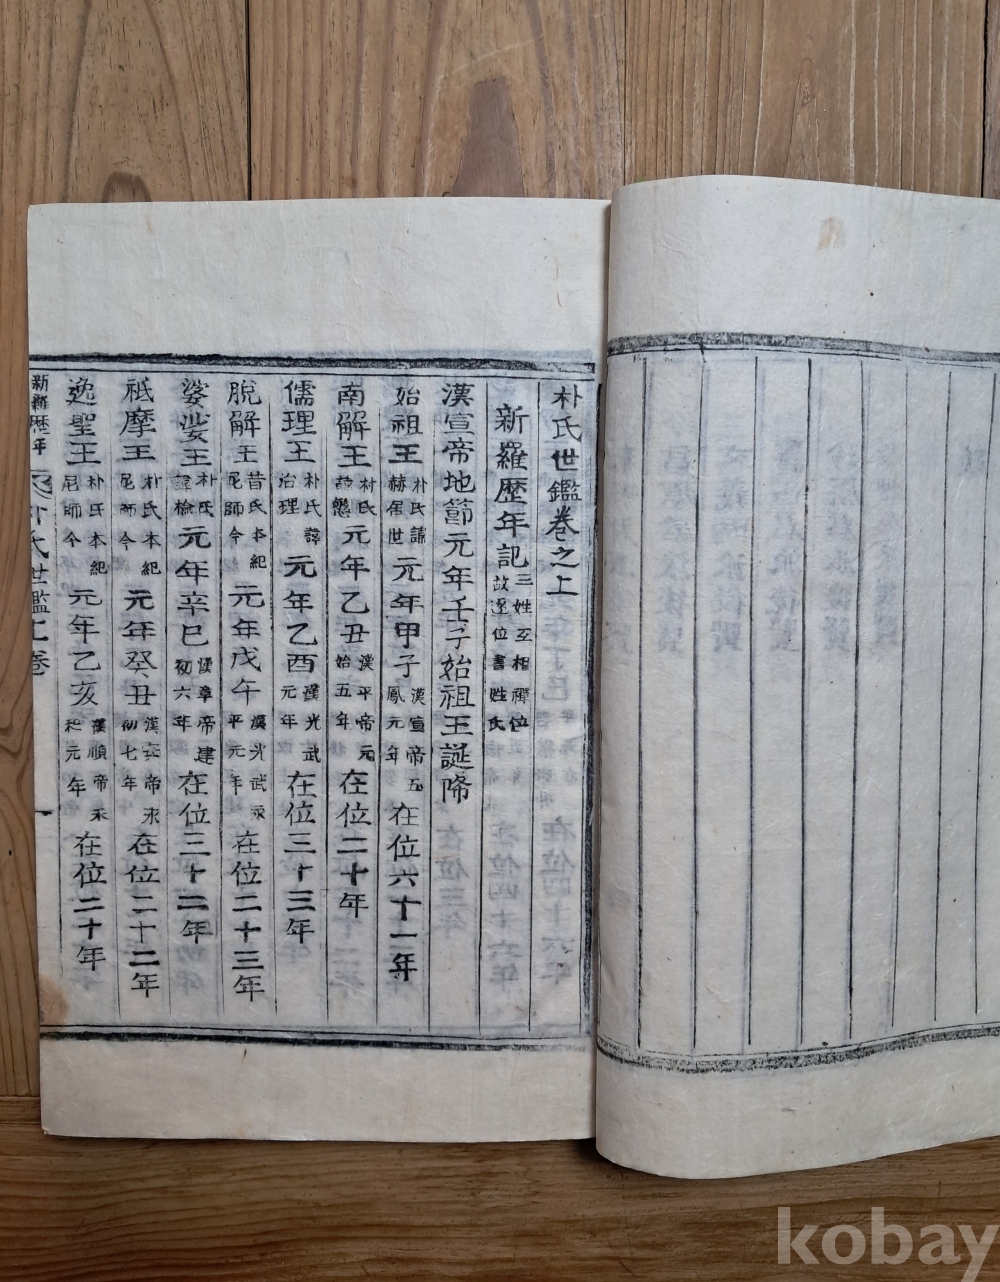 朴氏世鑑卷之上
新羅歷年記 三姓互相禪位 故逐位書姓氏
漢宣帝地節元年壬子始祖王誕降
始祖王 朴氏諱 赫居世 元年甲子 漢宣帝五 鳳元年 在位六十一年
南解王 朴氏 元年乙丑 漢平帝元 始五年 在位二十年
儒理王 朴氏諱 治理 元年乙酉 漢光武 元年 在位三十三年
脫解王 昔氏本紀 尼師今 元年戊午 漢光武永 平元年 在位二十三年
婆娑王 朴氏 諱檢 元年辛巳 漢章帝建 初六年 在位三十二年
祗摩王 朴氏本紀 尼師今 元年癸丑 漢安帝永 初七年 在位二十二年
逸聖王 朴氏本紀 尼師今 元年乙亥 漢順帝永 和元年 在位二十年
新羅歷年 朴氏世鑑上卷 一
kobay